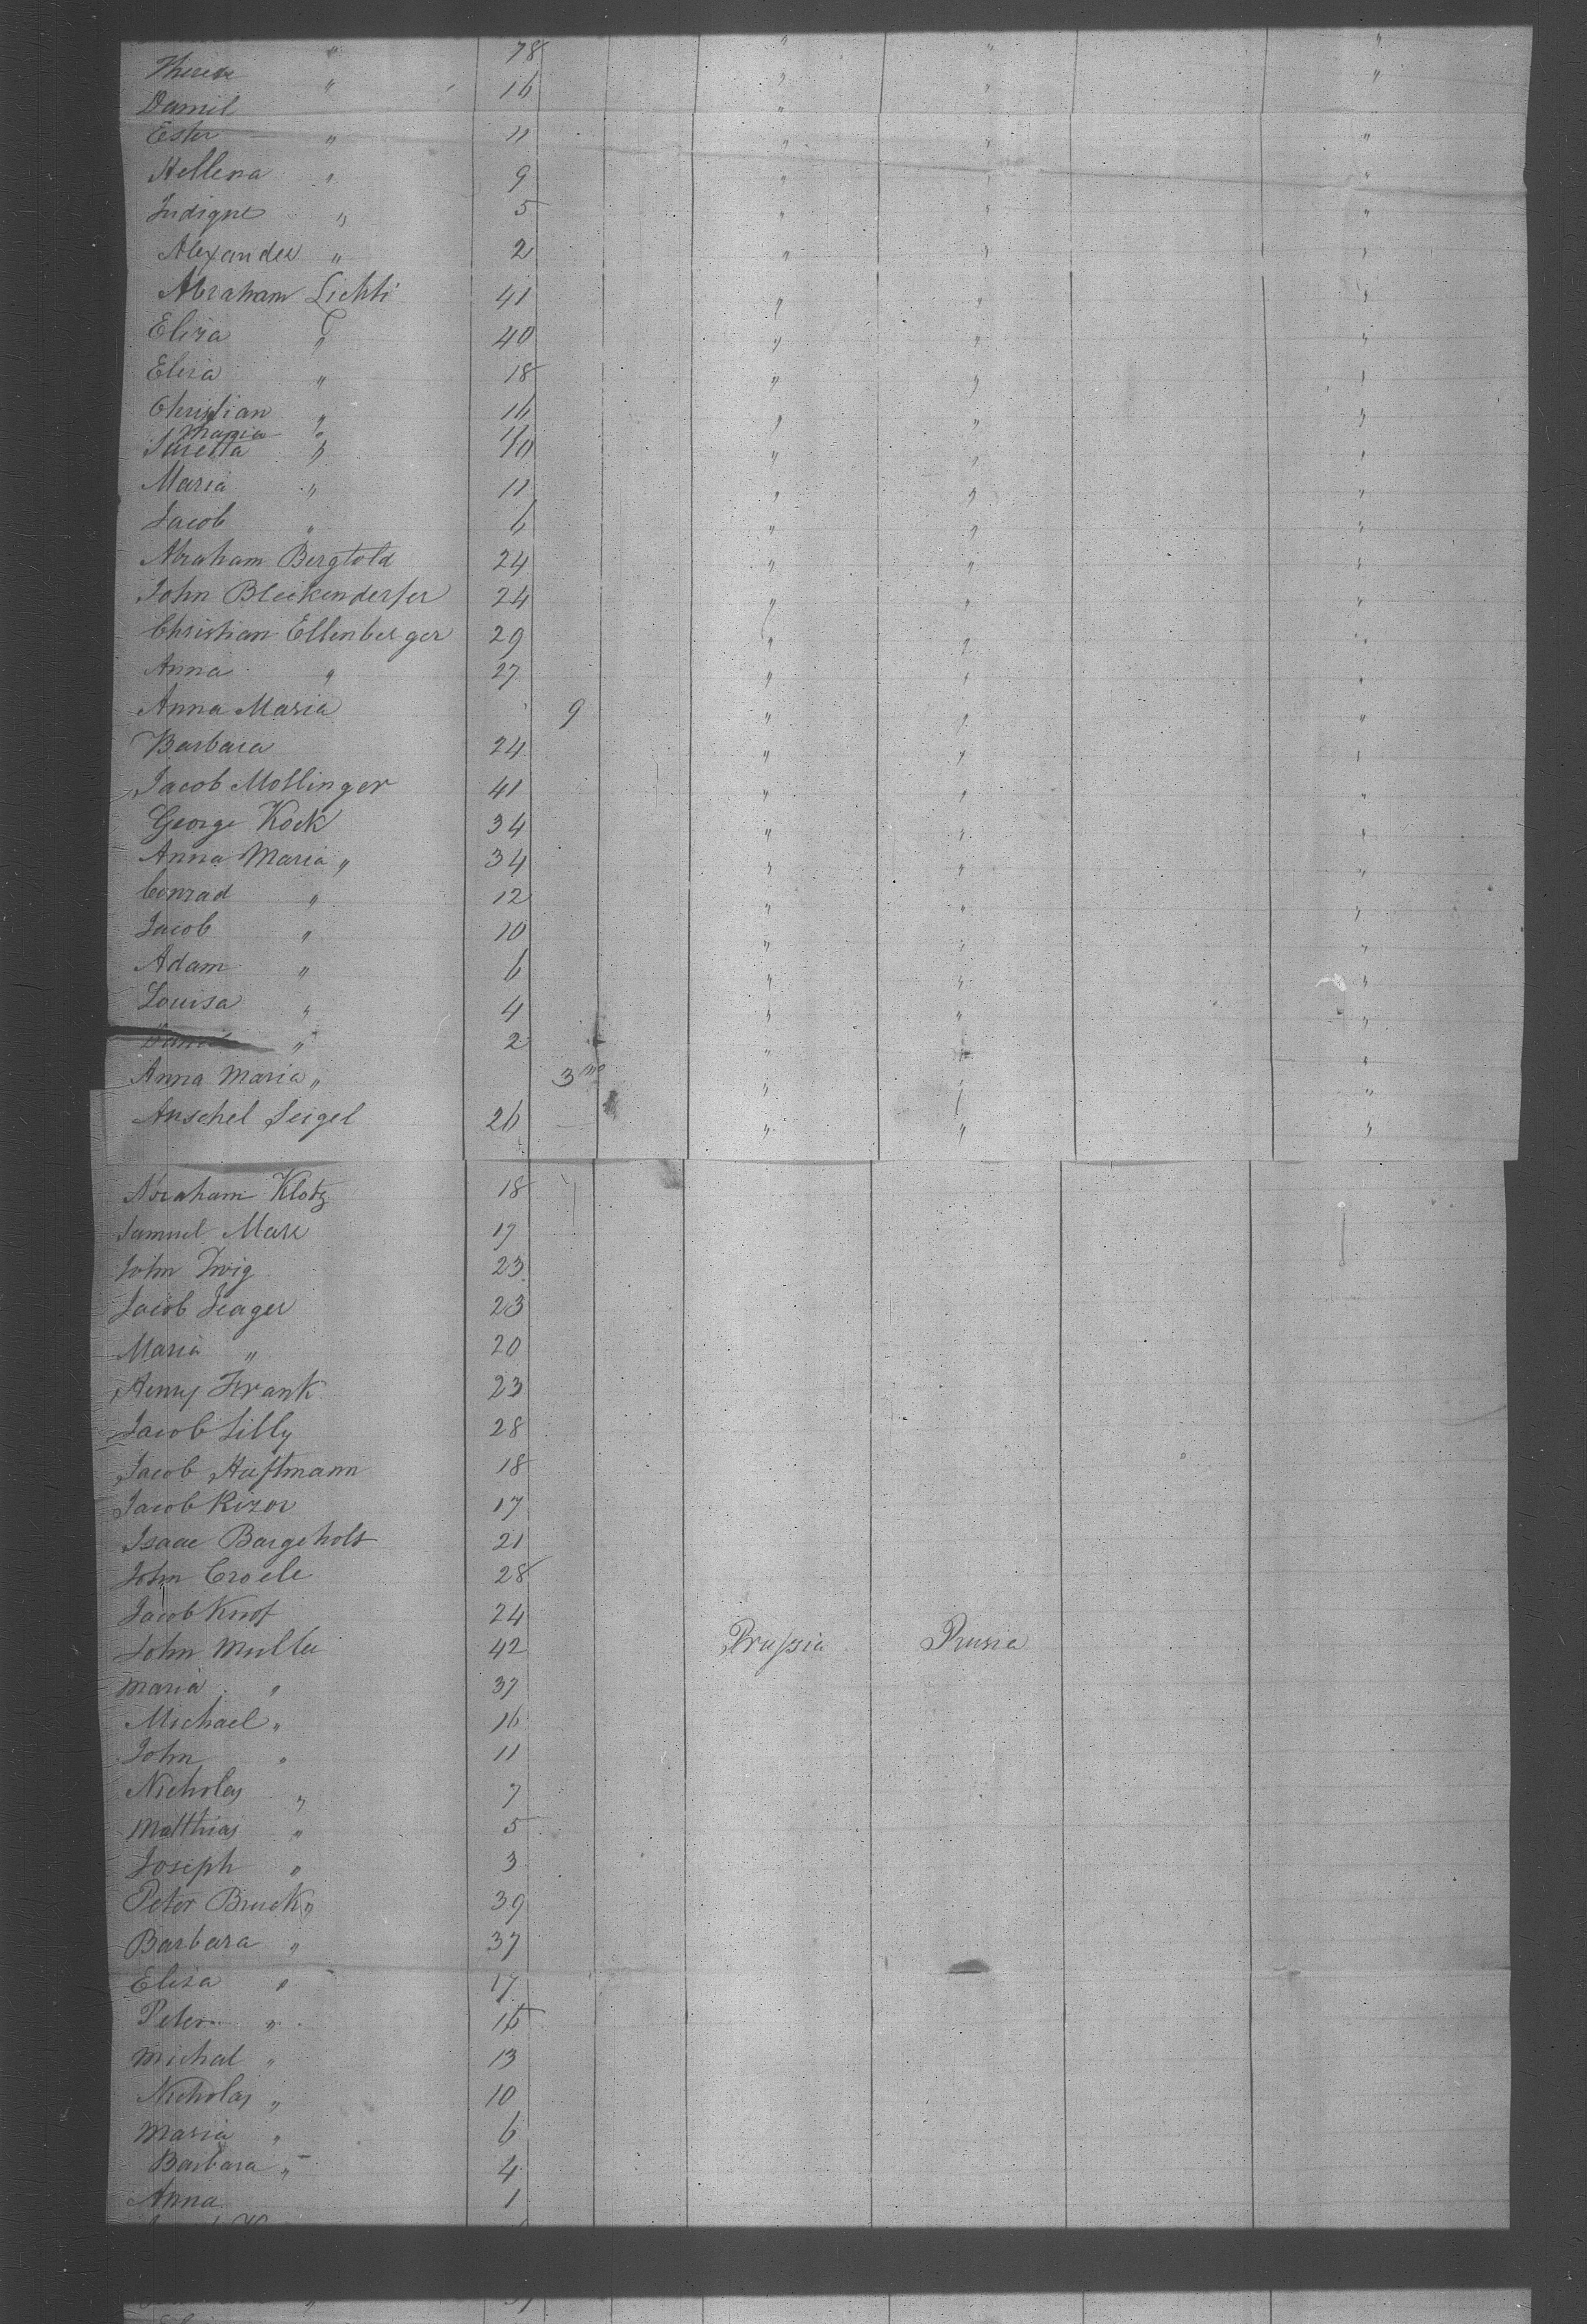 " 78 " " "
Therese " 16 " " "
Daniel "
Ester " 11 " " "
Hellena " 9 " " "
Indigne " 5 " " "
Alexander " 2 " " "
Abraham Lichti 41 " " "
Eliza " 40 " " "
Elisa " 18 " " "
Christian " 16 " " "
Maria "
Suretta " 10 " " "
Maria " 11 " " "
Jacob " 6 " " "
Abraham Bergtold 24 " " "
John Bleikenderfer 24 " " "
Christian Ellenberger 29 " " "
Anna " 27 " " "
Anna Maria 9 " " "
Barbara 24 " " "
Jacob Mollinger 41 " " "
George Kock 34 " " "
Anna Maria " 34 " " "
Conrad " 12 " " "
Jacob " 10 " " "
Adam " 6 " " "
Louisa " 4 " " "
" 2 " " "
Anna Maria " 3 mo " " "
Anschel Seigel 26 " " "
Abraham Klotz 18
Samuel Marx 17
John Zwig 23
Jacob Seager 23
Maria " 20
Henry Frank 23
Jacob Lilly 28
Jacob Huftmann 18
Jacob Kizor 17
Isaac Bargeholt 21
John Croele 28
Jacob Knof 24
John Muller 42 Prussia Prusia
Maria " 37
Michael " 16
John " 11
Nicholas " 7
Matthias " 5
Joseph " 3
Peter Bruck " 39
Barbara " 37
Elisa " 17
Peter " 15
Michal " 13
Nicholas " 10
Maria " 6
Barbara " 4
Anna 1